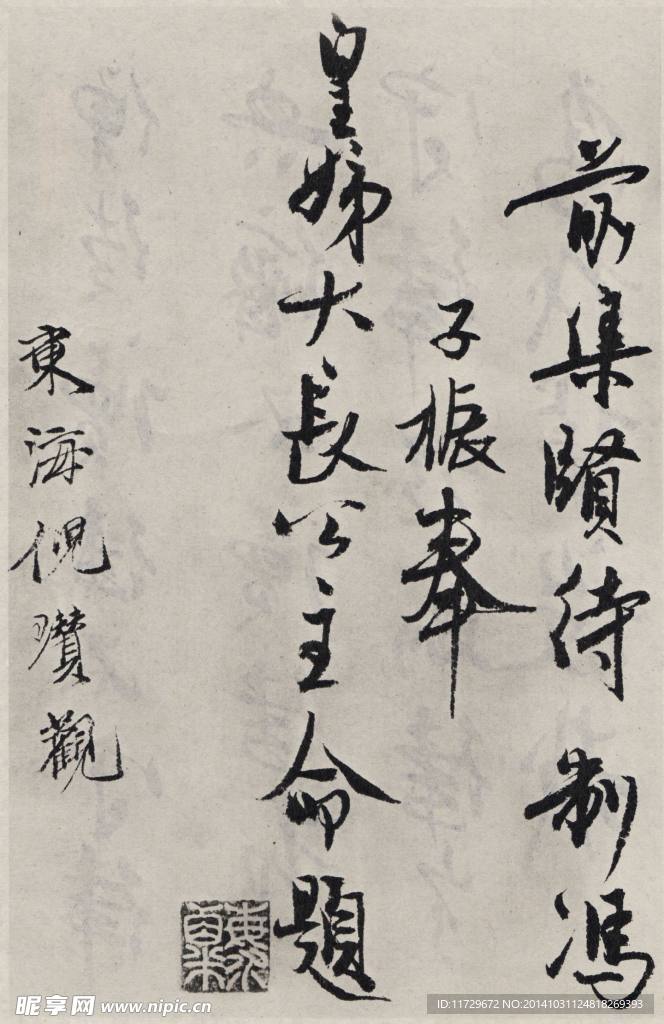 前集賢待制馮
子振奉
皇姊大長公主命題
東海倪瓚觀
昵享网 www.nipic.cn
ID:11729672 NO:20141031124818269393